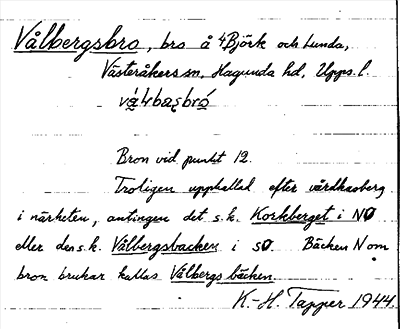 Vålbergsbro, bro å 4 Björk och Lunda,
Västeråkers sn, Hagunda hd, Upps. l.
Bron vid punkt 12.
Troligen uppkallad efter vårdkasberg
i närheten, antingen det s.k. Korkberget i NO
eller den s.k. Vålbergsbacken i SO. Bäcken N om
bron brukar kallas Vålbergsbäcken.
K.-H. Tapper 1944.